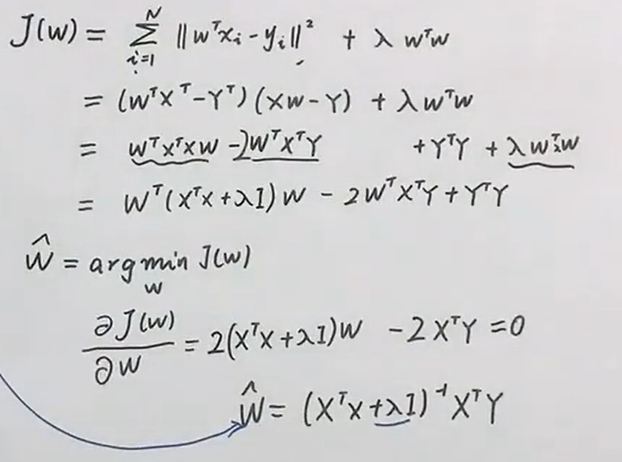 J(w) = \sum_{i=1}^{N} \|w^T x_i - y_i\|^2 + λ w^T w
= (w^T X^T - Y^T)(Xw - Y) + λ w^T w
= w^T X^T X w - 2w^T X^T Y + Y^T Y + λ w^T w
= W^T (X^T X + λI) W - 2W^T X^T Y + Y^T Y
\hat{W} = arg min_W J(w)
\frac{∂J(w)}{∂W} = 2(X^T X + λI)W - 2X^T Y = 0
\hat{W} = (X^T X + λI)^{-1} X^T Y